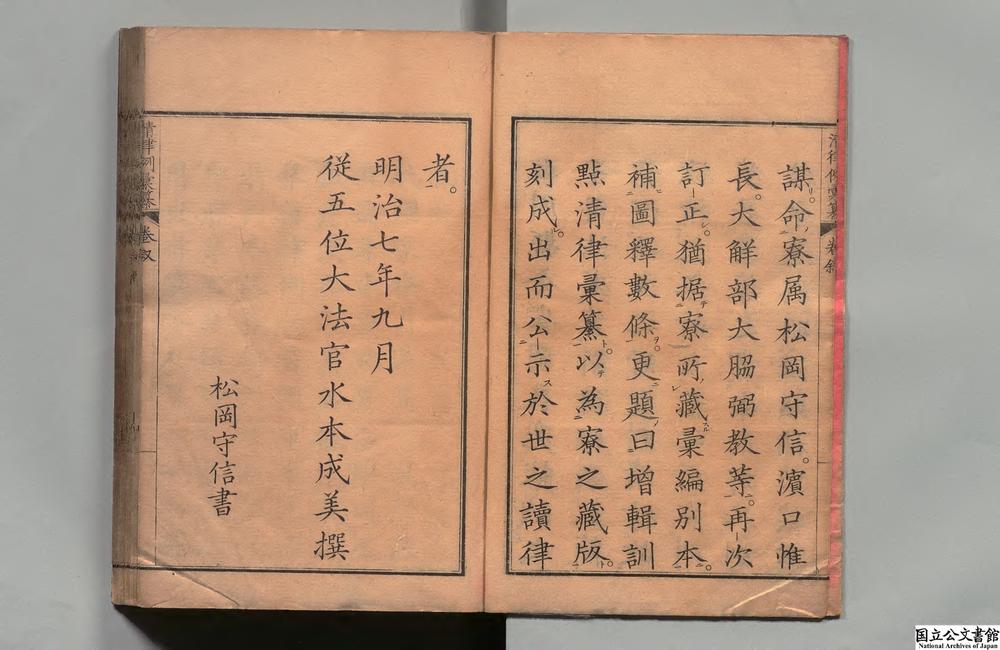 謀。命寮属松岡守信。濱口惟
長。大解部大脇弼教等。再次
訂正。猶据寮所藏彙編別本。
補圖釋數條。更題曰增輯訓
點清律彙纂。以為寮之藏版。
刻成。出而公示於世之讀律
者。
明治七年九月
従五位大法官水本成美撰
松岡守信書
卷叙
卷叙
国立公文書館
National Archives of Japan